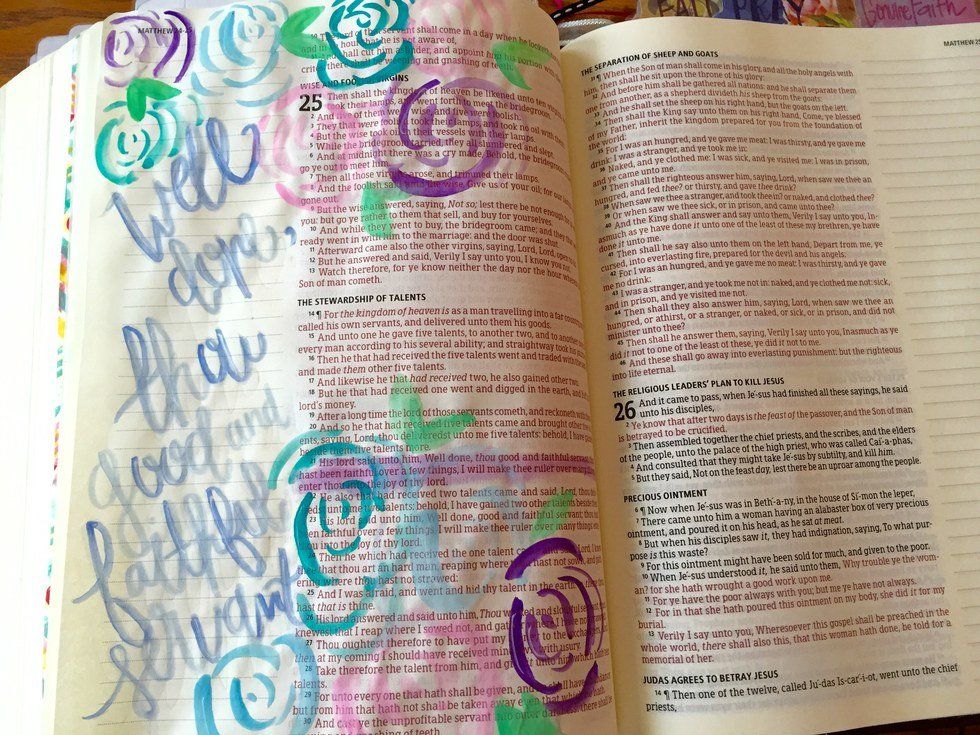 MATTHEW 24-25
Well
done,
thou
good and
faithful
servant
lord of the servant shall come in a day when he looketh
and in an hour that he is not aware of,
shall cut him asunder, and appoint him his portion with
there shall be weeping and gnashing of teeth.
WISE AND FOOLISH VIRGINS
25 Then shall the kingdom of heaven be likened unto ten
took their lamps, and went forth to meet the bridegroom.
2 And five of them were wise, and five were foolish.
3 They that were foolish took their lamps, and took no oil with
4 But the wise took oil in their vessels with their lamps.
5 While the bridegroom tarried, they all slumbered and slept.
6 And at midnight there was a cry made, Behold, the bridegroom
go ye out to meet him.
7 Then all those virgins arose, and trimmed their lamps.
8 And the foolish said unto the wise, Give us of your oil; for our
gone out.
9 But the wise answered, saying, Not so; lest there be not enough
you: but go ye rather to them that sell, and buy for yourselves.
10 And while they went to buy, the bridegroom came; and they
ready went in with him to the marriage: and the door was shut.
11 Afterward came also the other virgins, saying, Lord, Lord, open
12 But he answered and said, Verily I say unto you, I know you not.
13 Watch therefore, for ye know neither the day nor the hour
Son of man cometh.
THE STEWARDSHIP OF TALENTS
14 ¶ For the kingdom of heaven is as a man travelling into a far country,
called his own servants, and delivered unto them his goods.
15 And unto one he gave five talents, to another two, and to another
every man according to his several ability; and straightway took his
16 Then he that had received the five talents went and traded with the
and made them other five talents.
17 And likewise he that had received two, he also gained other two.
18 But he that had received one went and digged in the earth, and hid
lord's money.
19 After a long time the lord of those servants cometh, and reckoneth with
20 And so he that had received five talents came and brought other
talents, saying, Lord, thou deliveredst unto me five talents: behold, I have
beside them five talents more.
His lord said unto him, Well done, thou good and faithful servant:
hast been faithful over a few things, I will make thee ruler over many
enter thou into the joy of thy lord.
He also that had received two talents came and said, Lord, thou
unto me two talents: behold, I have gained two other talents beside
23 His lord said unto him, Well done, good and faithful servant; thou
been faithful over a few things, I will make thee ruler over many things:
thou into the joy of thy lord.
24 Then he which had received the one talent came and said, Lord, I
thee that thou art an hard man, reaping where thou hast not sown, and
where thou hast not strawed:
25 And I was afraid, and went and hid thy talent in the earth:
hast that is thine.
26 His lord answered and said unto him, Thou wicked and slothful
knewest that I reap where I sowed not, and
27 Thou oughtest therefore to have put my
then at my coming I should have received mine own with usury.
28 Take therefore the talent from him, and
talents.
29 For unto every one that hath shall be given, and he shall have
but from him that hath not shall be taken away even that which he hath
30 And cast ye the unprofitable servant into outer darkness: there shall
and gnashing of teeth.
Genuine Faith
MATTHEW 25
THE SEPARATION OF SHEEP AND GOATS
31 ¶ When the Son of man shall come in his glory, and all the holy angels with
him, then shall he sit upon the throne of his glory:
32 And before him shall be gathered all nations: and he shall separate them
one from another, as a shepherd divideth his sheep from the goats:
33 And he shall set the sheep on his right hand, but the goats on the left.
34 Then shall the King say unto them on his right hand, Come, ye blessed
of my Father, inherit the kingdom prepared for you from the foundation of
the world:
35 For I was an hungred, and ye gave me meat: I was thirsty, and ye gave me
drink: I was a stranger, and ye took me in:
36 Naked, and ye clothed me: I was sick, and ye visited me: I was in prison,
and ye came unto me.
37 Then shall the righteous answer him, saying, Lord, when saw we thee an
hungred, and fed thee? or thirsty, and gave thee drink?
38 When saw we thee a stranger, and took thee in? or naked, and clothed thee?
39 Or when saw we thee sick, or in prison, and came unto thee?
40 And the King shall answer and say unto them, Verily I say unto you, In-
asmuch as ye have done it unto one of the least of these my brethren, ye have
done it unto me.
41 Then shall he say also unto them on the left hand, Depart from me, ye
cursed, into everlasting fire, prepared for the devil and his angels:
42 For I was an hungred, and ye gave me no meat: I was thirsty, and ye gave
me no drink:
43 I was a stranger, and ye took me not in: naked, and ye clothed me not: sick,
and in prison, and ye visited me not.
44 Then shall they also answer him, saying, Lord, when saw we thee an
hungred, or athirst, or a stranger, or naked, or sick, or in prison, and did not
minister unto thee?
45 Then shall he answer them, saying, Verily I say unto you, Inasmuch as ye
did it not to one of the least of these, ye did it not to me.
46 And these shall go away into everlasting punishment: but the righteous
into life eternal.
THE RELIGIOUS LEADERS' PLAN TO KILL JESUS
26 And it came to pass, when Je´-sus had finished all these sayings, he said
unto his disciples,
2 Ye know that after two days is the feast of the passover, and the Son of man
is betrayed to be crucified.
3 Then assembled together the chief priests, and the scribes, and the elders
of the people, unto the palace of the high priest, who was called Cai´-a-phas,
4 And consulted that they might take Je´-sus by subtilty, and kill him.
5 But they said, Not on the feast day, lest there be an uproar among the people.
PRECIOUS OINTMENT
6 ¶ Now when Je´-sus was in Beth´-a-ny, in the house of Sí-mon the leper,
7 There came unto him a woman having an alabaster box of very precious
ointment, and poured it on his head, as he sat at meat.
8 But when his disciples saw it, they had indignation, saying, To what pur-
pose is this waste?
9 For this ointment might have been sold for much, and given to the poor.
10 When Je´-sus understood it, he said unto them, Why trouble ye the wom-
an? for she hath wrought a good work upon me.
11 For ye have the poor always with you; but me ye have not always.
12 For in that she hath poured this ointment on my body, she did it for my
burial.
13 Verily I say unto you, Wheresoever this gospel shall be preached in the
whole world, there shall also this, that this woman hath done, be told for a
memorial of her.
JUDAS AGREES TO BETRAY JESUS
14 ¶ Then one of the twelve, called Ju´-das Is-car´-i-ot, went unto the chief
priests,